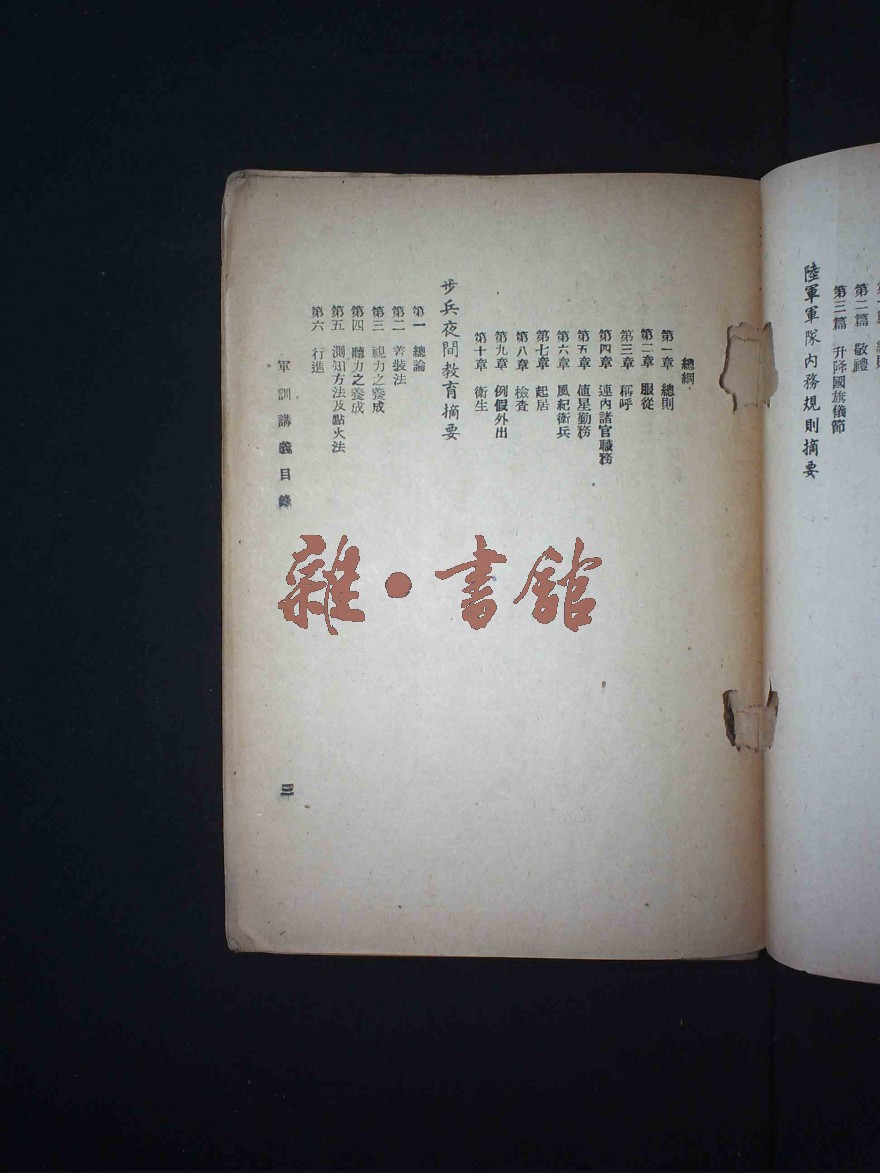 第二篇 敬禮
第三篇 升降國旗儀節
陸軍軍隊內務規則摘要
總綱
第一章 總則
第二章 服從
第三章 稱呼
第四章 連內諸官職務
第五章 值星勤務
第六章 風紀衛兵
第七章 起居
第八章 檢查
第九章 例假外出
第十章 衛生
步兵夜間教育摘要
第一 總論
第二 着裝法
第三 視力之養成
第四 聽力之養成
第五 測知方法及點火法
第六 行進
軍訓講義目錄
三
雜·書館